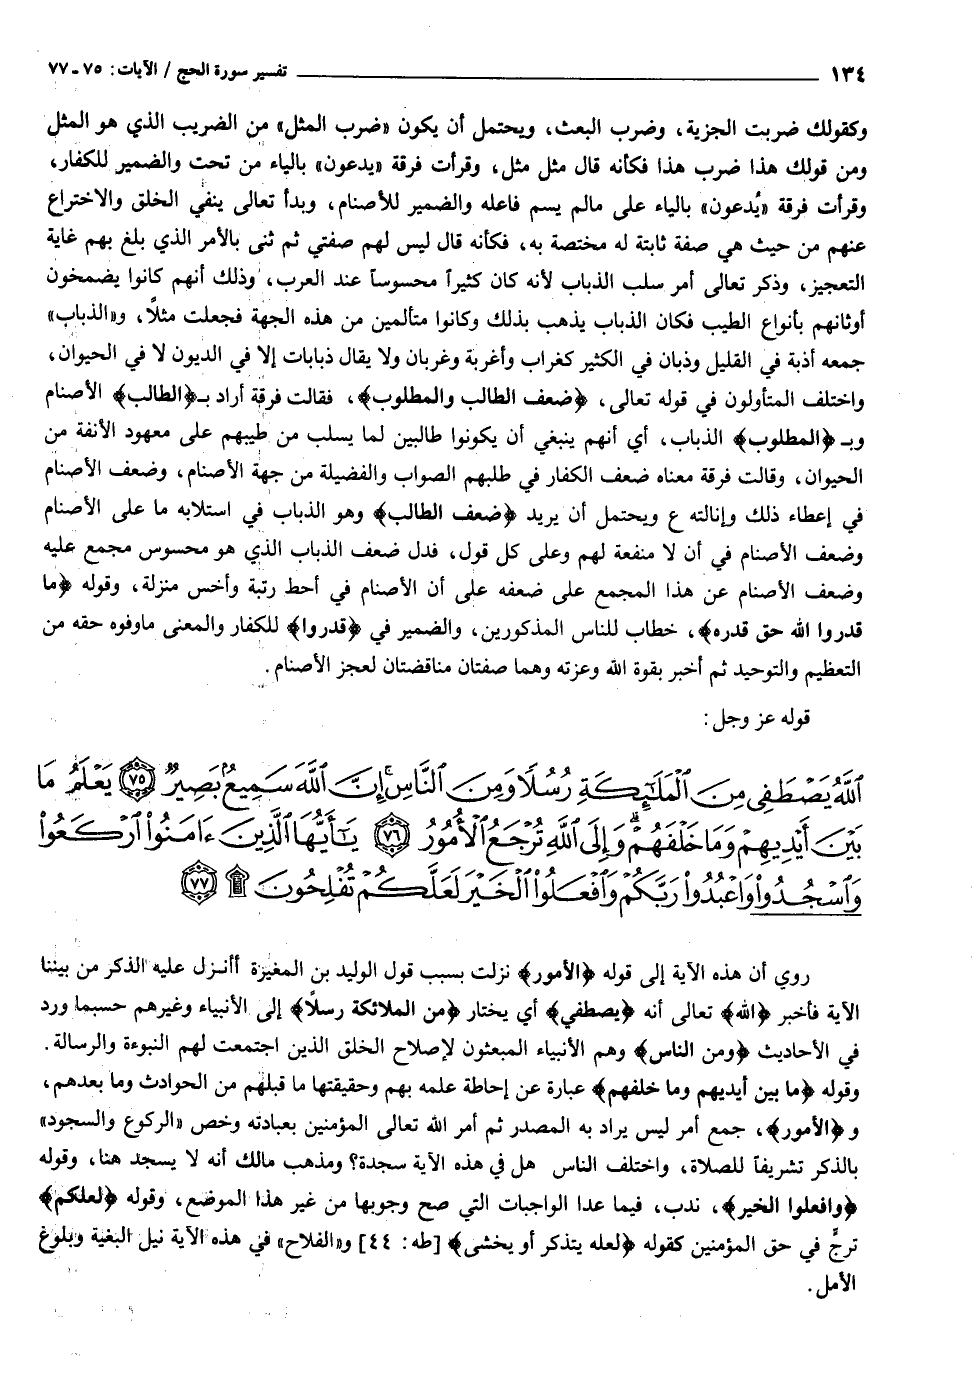 ١٣٤ تفسير سورة الحج / الآيات: ٧٥ - ٧٧
وكقولك ضربت الجزية، وضرب البعث، ويحتمل أن يكون «ضرب المثل» من الضريب الذي هو المثل
ومن قولك هذا ضرب هذا فكأنه قال مثل مثل، وقرأت فرقة «يدعون» بالياء من تحت والضمير للكفار،
وقرأت فرقة «يُدعون» بالياء على مالم يسم فاعله والضمير للأصنام، وبدأ تعالى ينفي الخلق والاختراع
عنهم من حيث هي صفة ثابتة له مختصة به، فكأنه قال ليس لهم صفتي ثم ثنى بالأمر الذي بلغ بهم غاية
التعجيز، وذكر تعالى أمر سلب الذباب لأنه كان كثيراً محسوساً عند العرب، وذلك أنهم كانوا يضمخون
أوثانهم بأنواع الطيب فكان الذباب يذهب بذلك وكانوا متألمين من هذه الجهة فجعلت مثلاً، و«الذباب»
جمعه أذبة في القليل وذبان في الكثير كغراب وأغربة وغربان ولا يقال ذبابات إلا في الديون لا في الحيوان،
واختلف المتأولون في قوله تعالى، ﴿ضعف الطالب والمطلوب﴾، فقالت فرقة أراد بـ﴿الطالب﴾ الأصنام
وبـ ﴿المطلوب﴾ الذباب، أي أنهم ينبغي أن يكونوا طالبين لما يسلب من طيبهم على معهود الأنفة من
الحيوان، وقالت فرقة معناه ضعف الكفار في طلبهم الصواب والفضيلة من جهة الأصنام، وضعف الأصنام
في إعطاء ذلك وإنالته ع ويحتمل أن يريد ﴿ضعف الطالب﴾ وهو الذباب في استلابه ما على الأصنام
وضعف الأصنام في أن لا منفعة لهم وعلى كل قول، فدل ضعف الذباب الذي هو محسوس مجمع عليه
وضعف الأصنام عن هذا المجمع على ضعفه على أن الأصنام في أحط رتبة وأخس منزلة، وقوله ﴿ما
قدروا الله حق قدره﴾، خطاب للناس المذكورين، والضمير في ﴿قدروا﴾ للكفار والمعنى ماوفوه حقه من
التعظيم والتوحيد ثم أخبر بقوة الله وعزته وهما صفتان مناقضتان لعجز الأصنام.
قوله عز وجل:
ٱللَّهُ يَصْطَفِى مِنَ ٱلْمَلَٰٓئِكَةِ رُسُلًا وَمِنَ ٱلنَّاسِ ۚ إِنَّ ٱللَّهَ سَمِيعٌۢ بَصِيرٌ ﴿٧٥﴾ يَعْلَمُ مَا
بَيْنَ أَيْدِيهِمْ وَمَا خَلْفَهُمْ ۗ وَإِلَى ٱللَّهِ تُرْجَعُ ٱلْأُمُورُ ﴿٧٦﴾ يَٰٓأَيُّهَا ٱلَّذِينَ ءَامَنُوا۟ ٱرْكَعُوا۟
وَٱسْجُدُوا۟ وَٱعْبُدُوا۟ رَبَّكُمْ وَٱفْعَلُوا۟ ٱلْخَيْرَ لَعَلَّكُمْ تُفْلِحُونَ ۩ ﴿٧٧﴾
روي أن هذه الآية إلى قوله ﴿الأمور﴾ نزلت بسبب قول الوليد بن المغيرة أأنزل عليه الذكر من بيننا
الآية فأخبر ﴿الله﴾ تعالى أنه ﴿يصطفي﴾ أي يختار ﴿من الملائكة رسلاً﴾ إلى الأنبياء وغيرهم حسبما ورد
في الأحاديث ﴿ومن الناس﴾ وهم الأنبياء المبعثون لإصلاح الخلق الذين اجتمعت لهم النبوءة والرسالة.
وقوله ﴿ما بين أيديهم وما خلفهم﴾ عبارة عن إحاطة علمه بهم وحقيقتها ما قبلهم من الحوادث وما بعدهم،
و﴿الأمور﴾، جمع أمر ليس يراد به المصدر ثم أمر الله تعالى المؤمنين بعبادته وخص «الركوع والسجود»
بالذكر تشريفاً للصلاة، واختلف الناس هل في هذه الآية سجدة؟ ومذهب مالك أنه لا يسجد هنا، وقوله
﴿وافعلوا الخير﴾، ندب، فيما عدا الواجبات التي صح وجوبها من غير هذا الموضع، وقوله ﴿لعلكم﴾
ترجٍّ في حق المؤمنين كقوله ﴿لعله يتذكر أو يخشى﴾ [طه: ٤٤] و«الفلاح» في هذه الآية نيل البغية وبلوغ
الأمل.